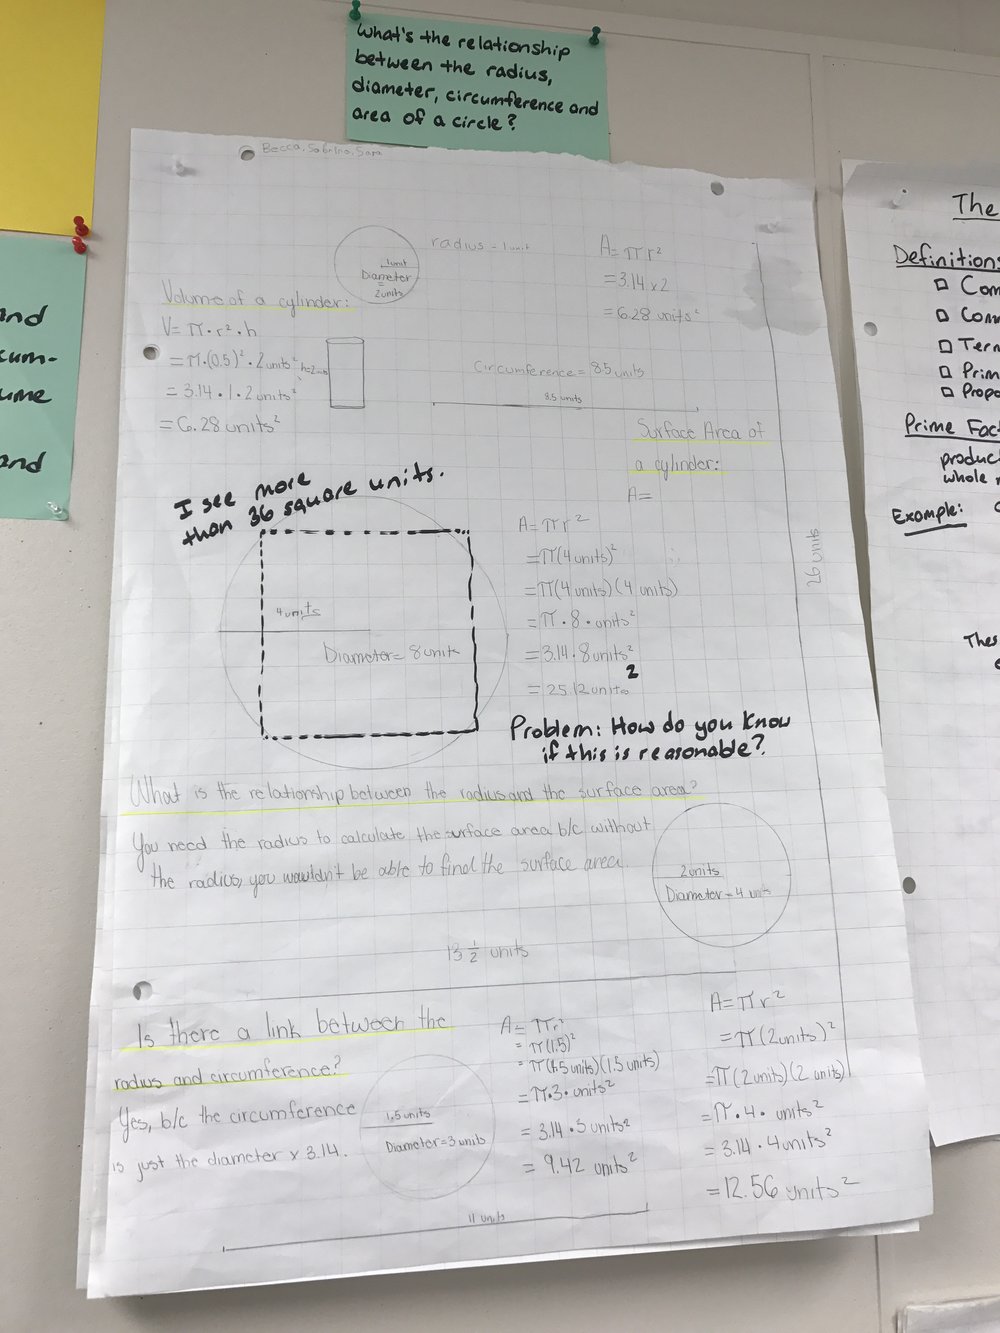 What's the relationship
between the radius,
diameter, circumference and
area of a circle?
Becca, Sabrina, Sara
radius = 1 unit
1unit
Diameter
=
2units
A= πr²
= 3.14 x 2
= 6.28 units²
Volume of a cylinder:
V= π·r²·h
= π·(0.5)²·2units²
= 3.14·1·2units²
= 6.28 units²
Circumference = 8.5 units
8.5 units
Surface Area of
a cylinder:
A=
I see more
than 36 square units.
4units
Diameter= 8units
A= πr²
= π(4units)²
= π(4units)(4 units)
= π·8·units²
= 3.14·8units²
= 25.12units 2
26 units
Problem: How do you know
if this is reasonable?
What is the relationship between the radius and the surface area?
You need the radius to calculate the surface area b/c without
the radius, you wouldn't be able to find the surface area.
2units
Diameter=4 units
13 1/2 units
Is there a link between the
radius and circumference?
Yes, b/c the circumference
is just the diameter x 3.14.
1.5units
Diameter=3 units
A= πr²
= π(1.5)²
= π(1.5 units)(1.5 units)
= π·3·units²
= 3.14·5units²
= 9.42 units²
A= πr²
= π(2units)²
= π(2units)(2 units)
= π·4· units²
= 3.14·4units²
= 12.56 units²
11 units
and
cum-
ume
and
The
Definitions
Com
Com
Term
Prim
Propo
Prime Fact
produc
whole n
Example:
Thes